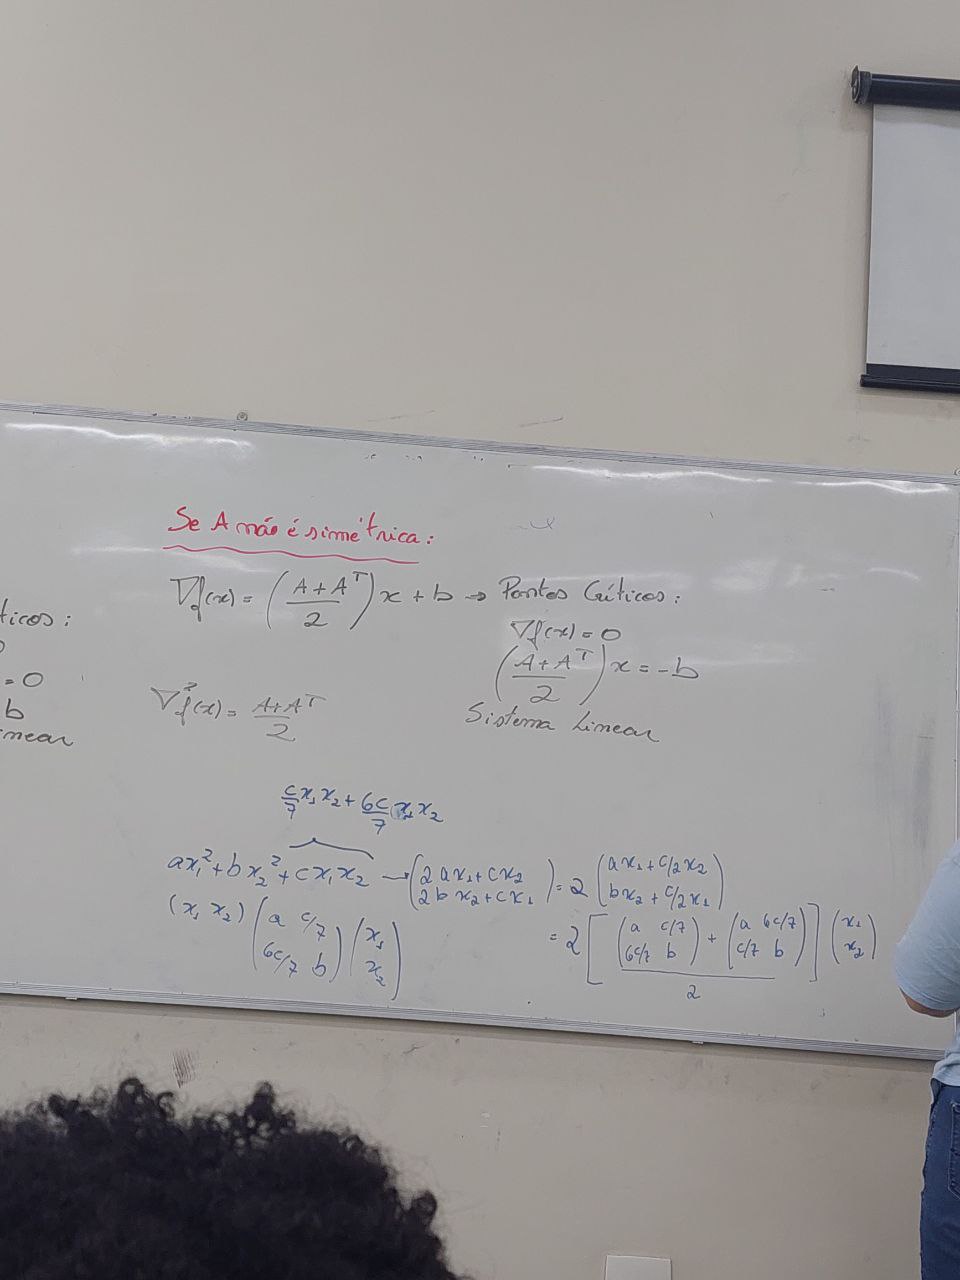 ticos:
=0
b
near
Se A não é simétrica:
∇f(x) = ((A+Aᵀ)/2)x + b → Pontos Críticos:
∇f(x) = 0
((A+Aᵀ)/2)x = -b
Sistema Linear
∇²f(x) = (A+Aᵀ)/2
c/7 x₁x₂ + 6c/7 x₁x₂
ax₁² + bx₂² + cx₁x₂ → (2ax₁+cx₂ ; 2bx₂+cx₁) = 2 (ax₁+c/2x₂ ; bx₂+c/2x₁)
(x₁ x₂) (a c/7 ; 6c/7 b) (x₁ ; x₂)
= 2 [((a c/7 ; 6c/7 b) + (a 6c/7 ; c/7 b))/2] (x₁ ; x₂)